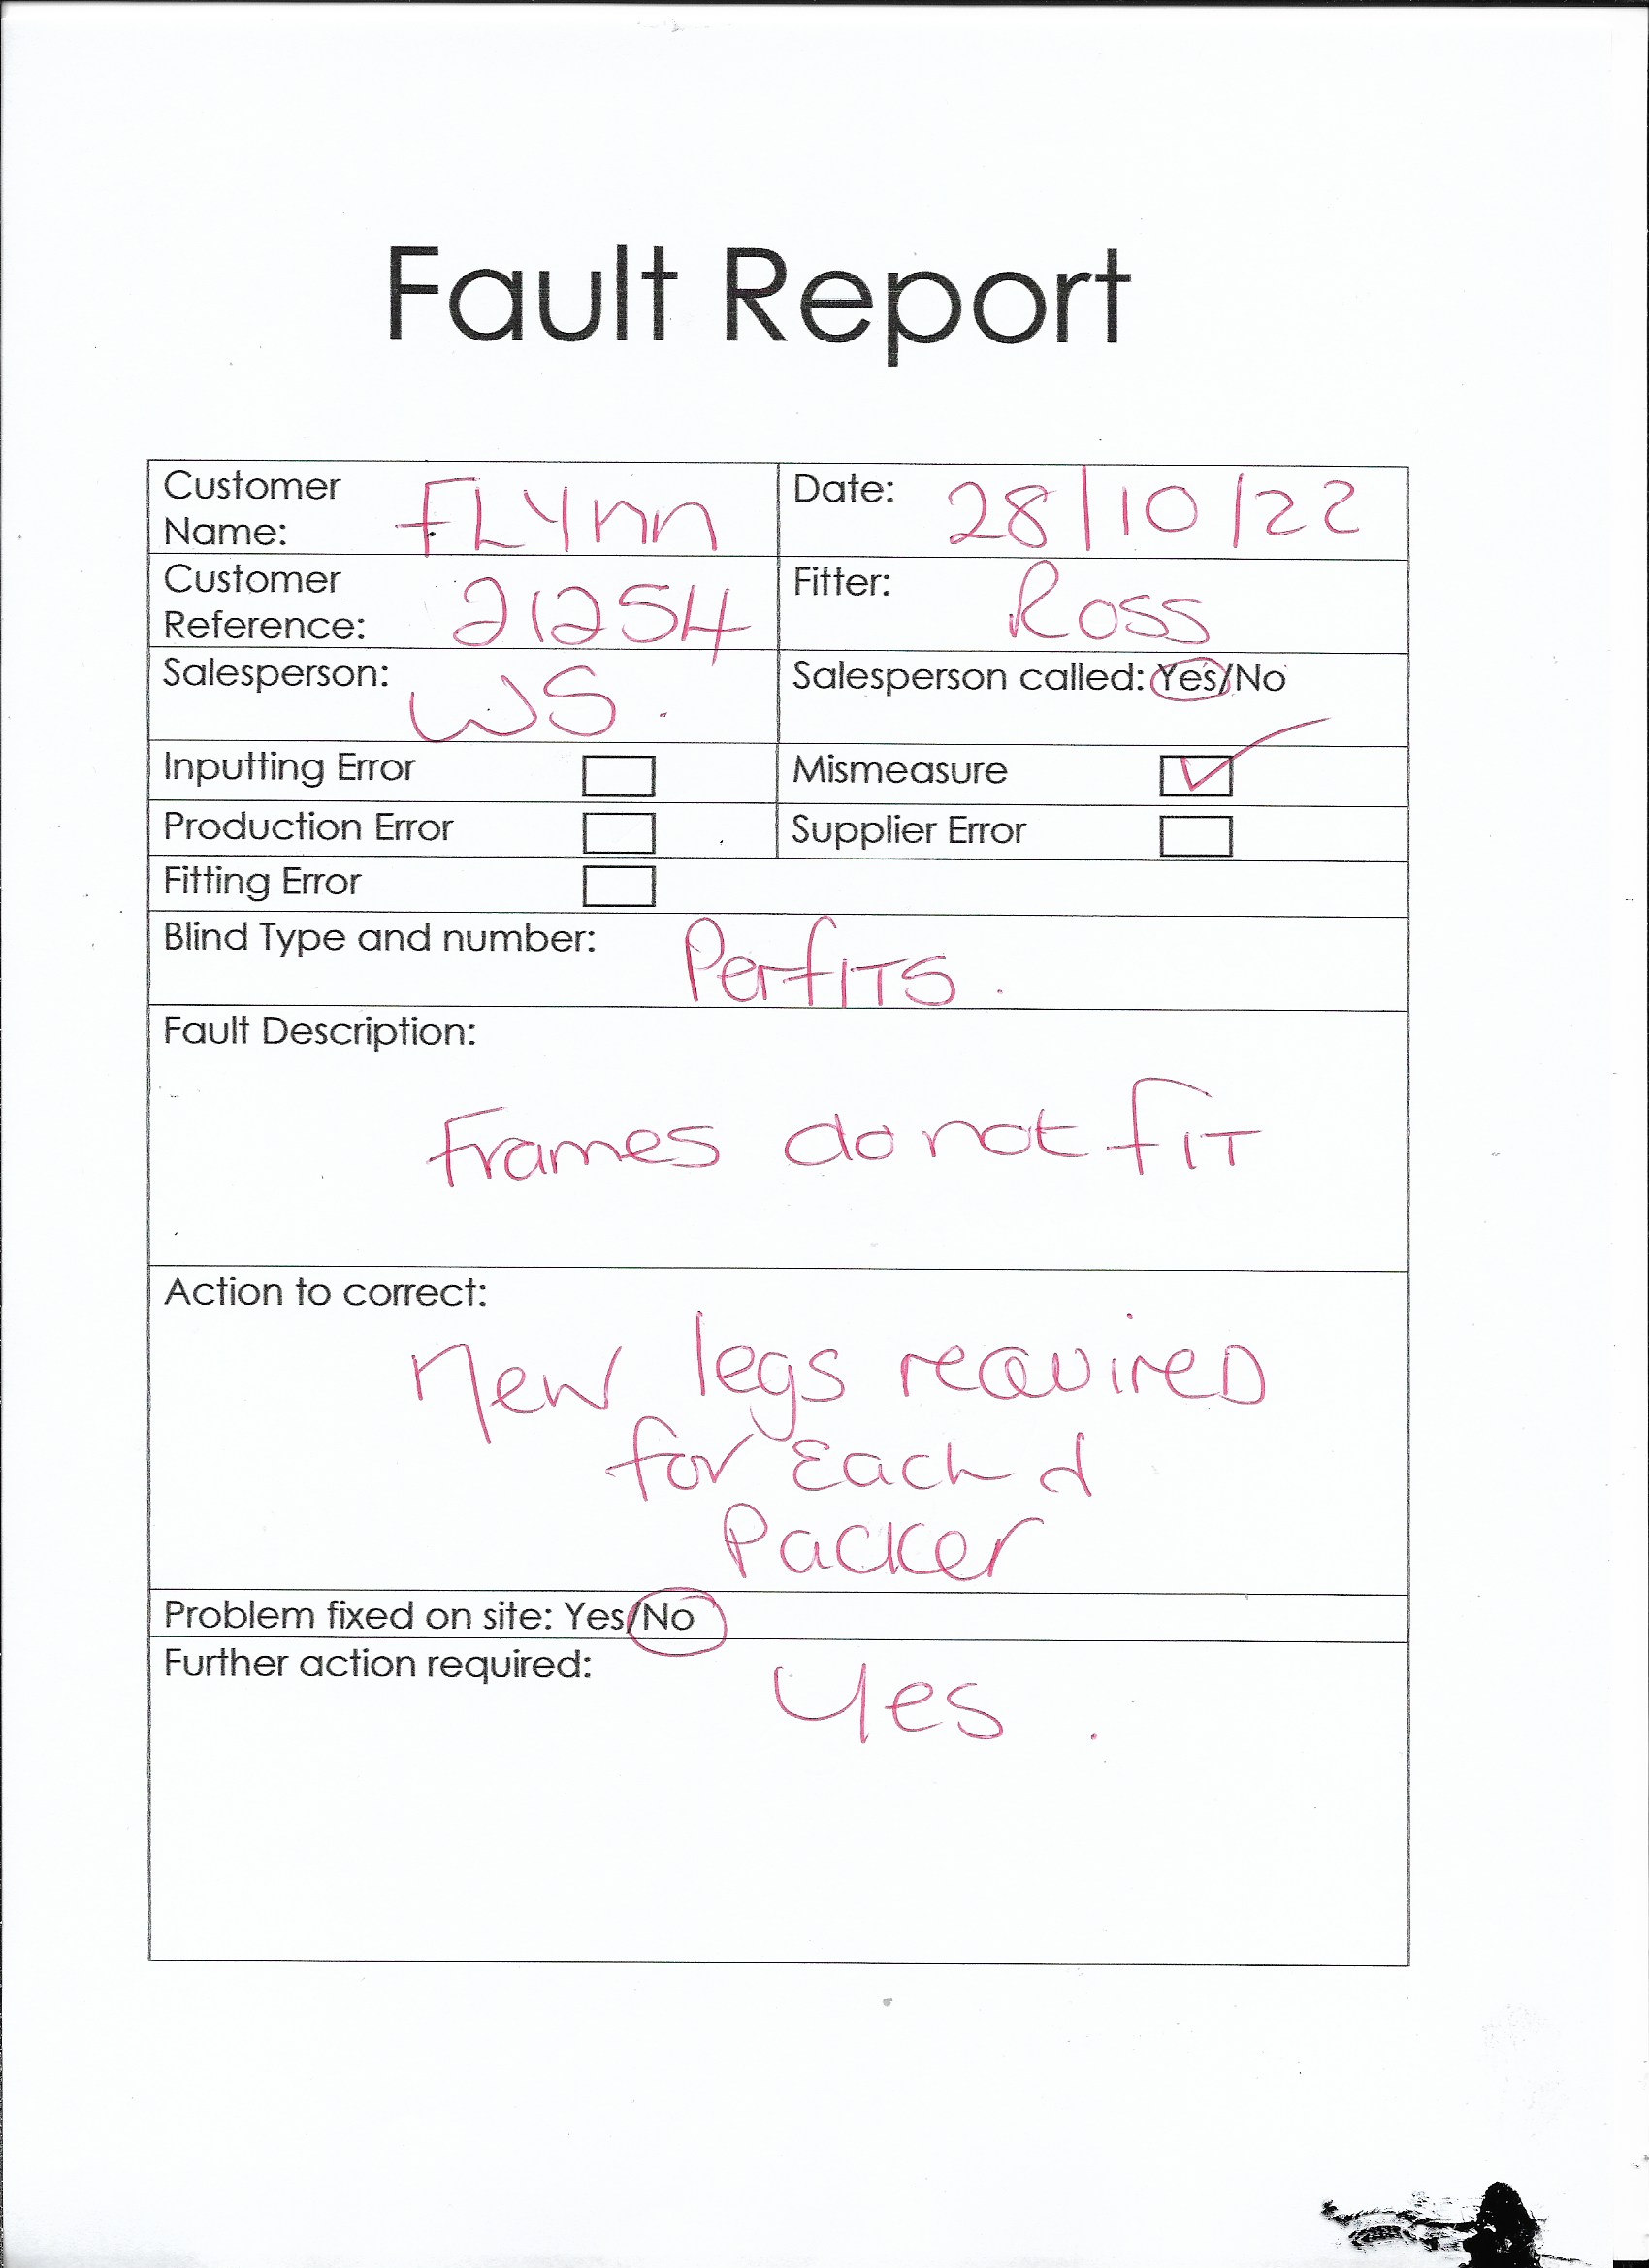 Fault Report
Customer Name: FLynn
Date: 28/10/22
Customer Reference: 21254
Fitter: Ross
Salesperson: WS.
Salesperson called: Yes/No
Inputting Error
Mismeasure ✓
Production Error
Supplier Error
Fitting Error
Blind Type and number: PerfITS.
Fault Description:
Frames do not fIT
Action to correct:
New legs reQuireD
for Each &
Packer
Problem fixed on site: Yes/No
Further action required: Yes.